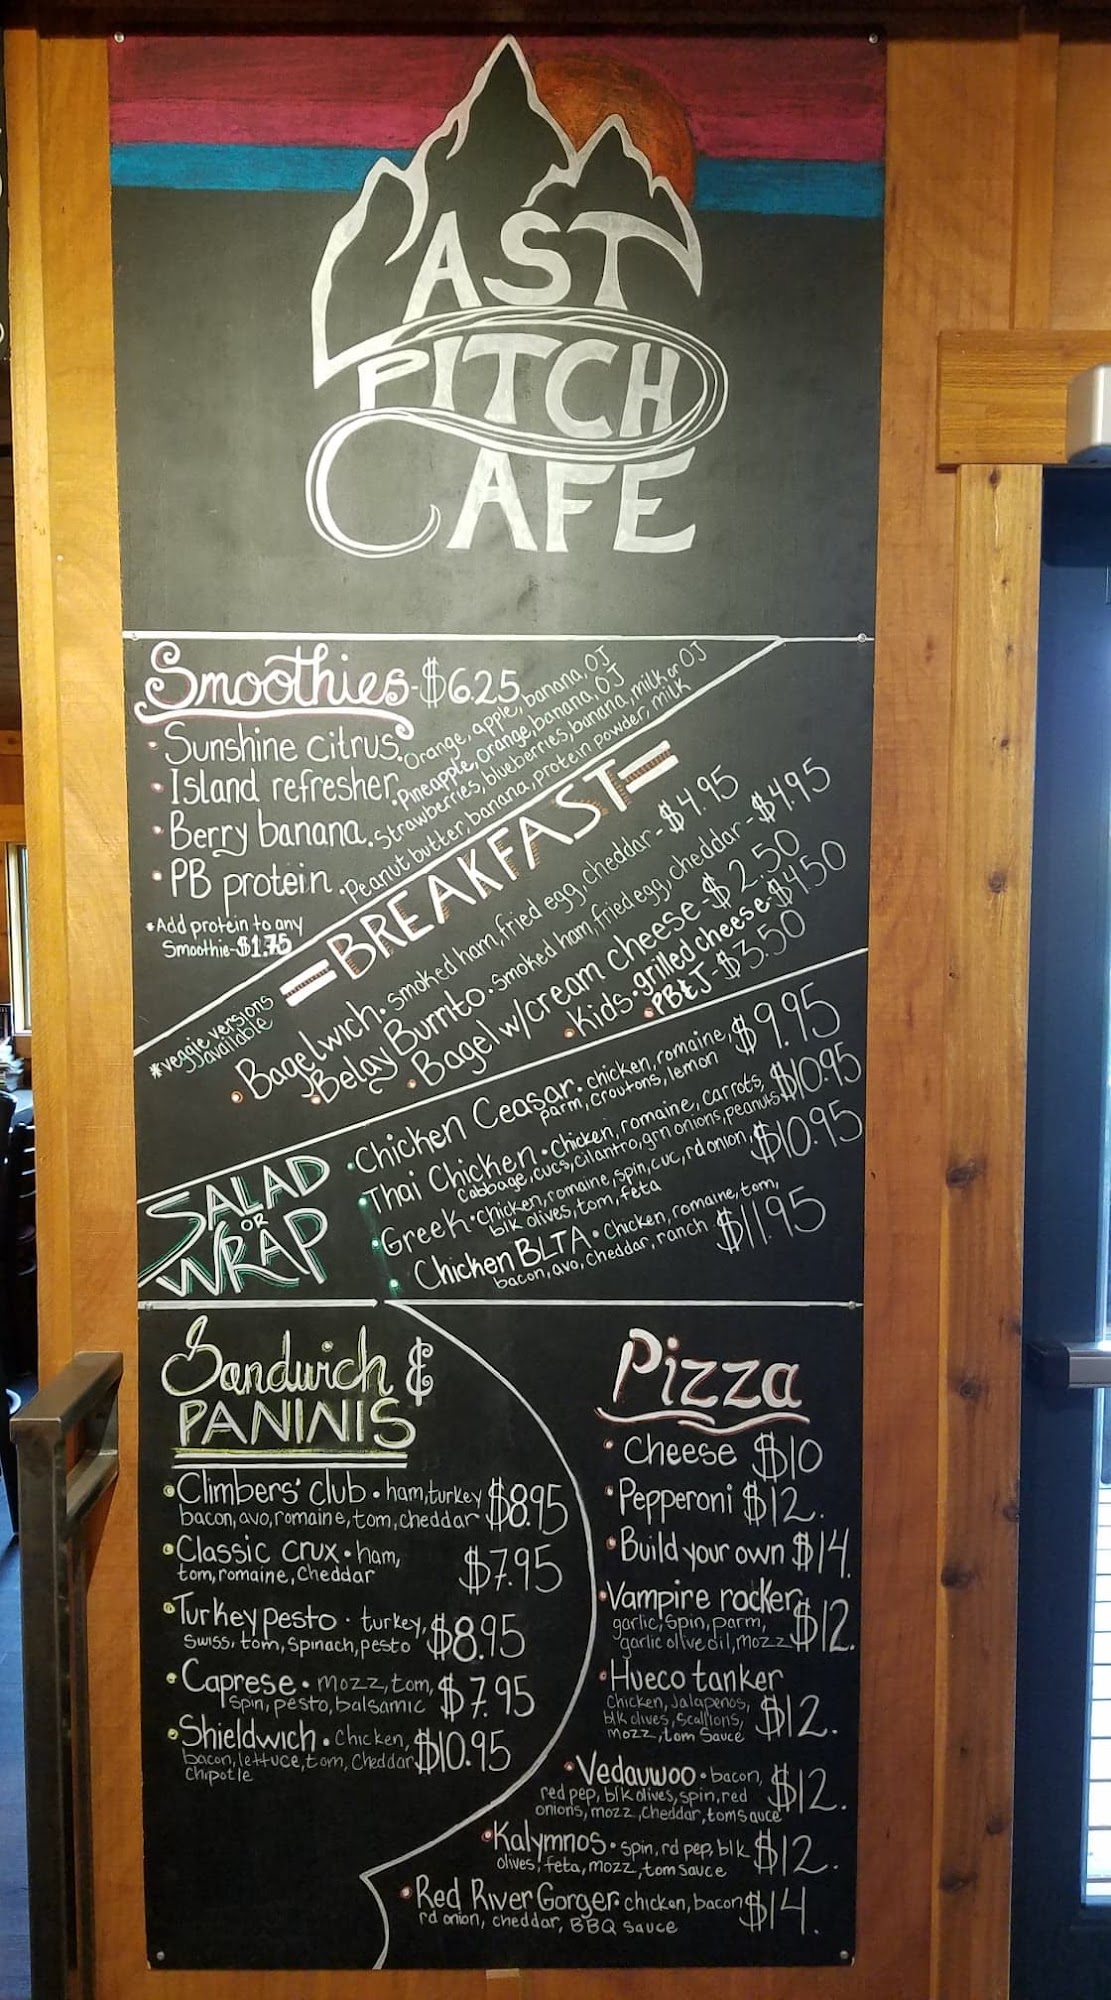 LAST
PITCH
CAFE
Smoothies-$6.25
• Sunshine citrus. Orange, apple, banana, OJ
• Island refresher. Pineapple, Orange, banana, OJ
• Berry banana. Strawberries, blueberries, banana, milk or OJ
• PB protein. Peanut butter, banana, protein powder, milk
*Add protein to any
Smoothie-$1.75
BREAKFAST
*veggie versions
available
• Bagelwich. smoked ham, fried egg, cheddar-$4.95
• Belay Burrito. smoked ham, fried egg, cheddar-$4.95
• Bagel w/cream cheese-$2.50
• Kids • grilled cheese-$4.50
• PB&J-$3.50
SALAD
OR
WRAP
• Chicken Ceasar. chicken, romaine, $9.95
parm, croutons, lemon
• Thai Chicken • Chicken, romaine, carrots, $10.95
cabbage, cucs, cilantro, grn onions, peanuts
• Greek • chicken, romaine, spin, cuc, rd onion, $10.95
blk olives, tom, feta
• Chicken BLTA • Chicken, romaine, tom, $11.95
bacon, avo, cheddar, ranch
Sandwich &
PANINIS
• Climbers' club • ham, turkey $8.95
bacon, avo, romaine, tom, cheddar
• Classic crux • ham, $7.95
tom, romaine, Cheddar
• Turkey pesto • turkey, $8.95
Swiss, tom, spinach, pesto
• Caprese • mozz, tom, $7.95
spin, pesto, balsamic
• Shieldwich • Chicken, $10.95
bacon, lettuce, tom, Cheddar
Chipotle
Pizza
• Cheese $10
• Pepperoni $12.
• Build your own $14.
• Vampire rocker $12.
garlic, spin, parm,
garlic olive oil, mozz
• Hueco tanker
chicken, Jalapenos, $12.
blk olives, Scallions,
mozz, tom Sauce
• Vedauwoo • bacon, $12.
red pep, blk olives, spin, red
onions, mozz, cheddar, tom sauce
• Kalymnos • spin, rd pep, blk $12.
olives, feta, mozz, tom sauce
• Red River Gorger • chicken, bacon $14.
rd onion, cheddar, BBQ sauce